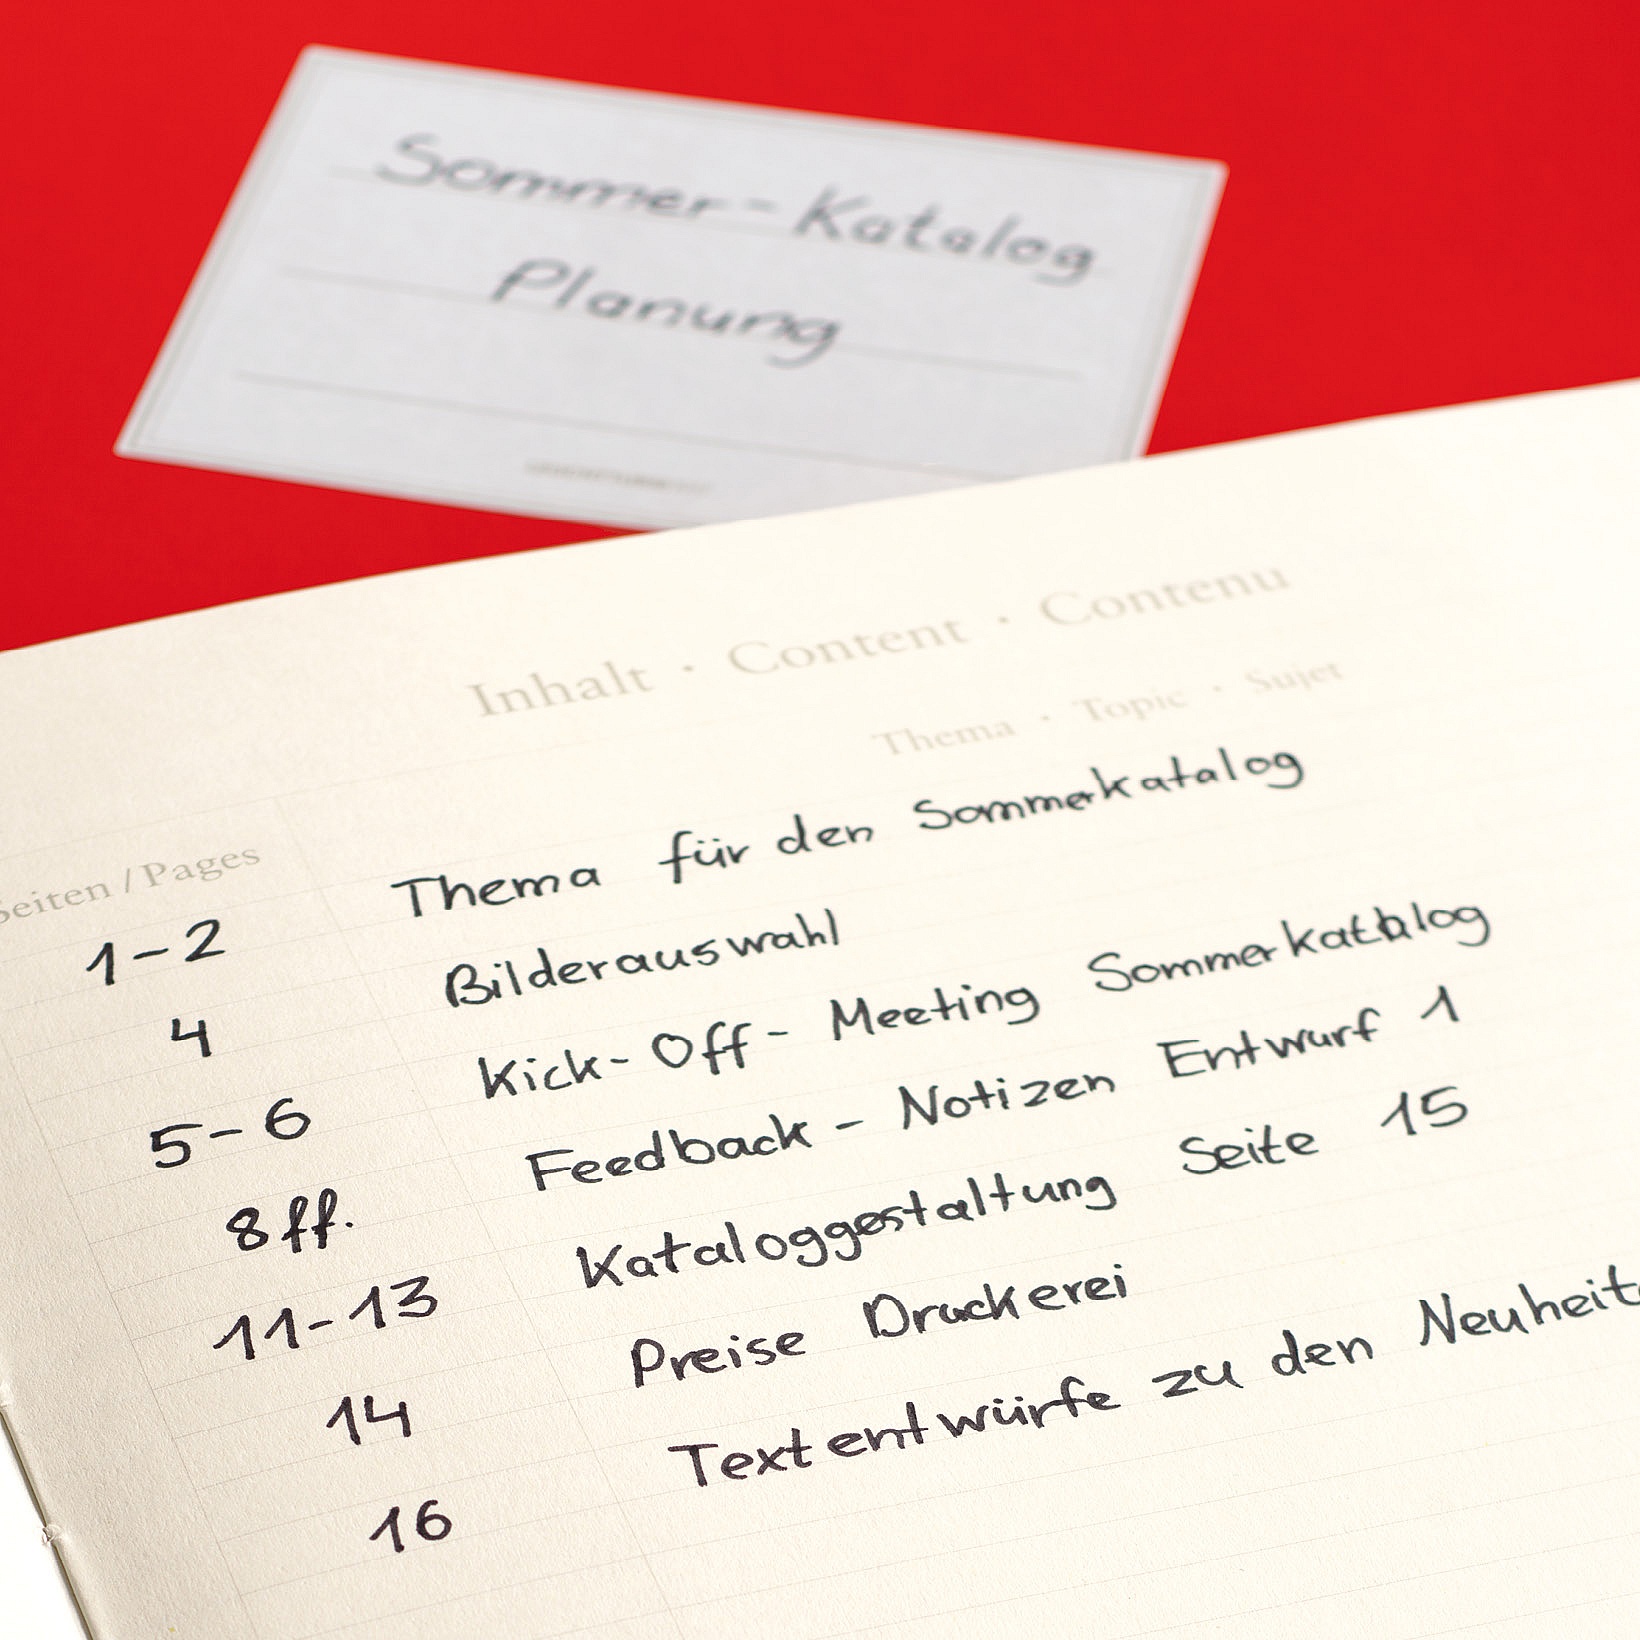 Sommer-Katalog
Planung
Inhalt · Content · Contenu
Seiten / Pages
Thema · Topic · Sujet
1-2 Thema für den Sommerkatalog
4 Bilderauswahl
5-6 Kick-Off-Meeting Sommerkatalog
8ff. Feedback-Notizen Entwurf 1
11-13 Kataloggestaltung Seite 15
14 Preise Druckerei
16 Textentwürfe zu den